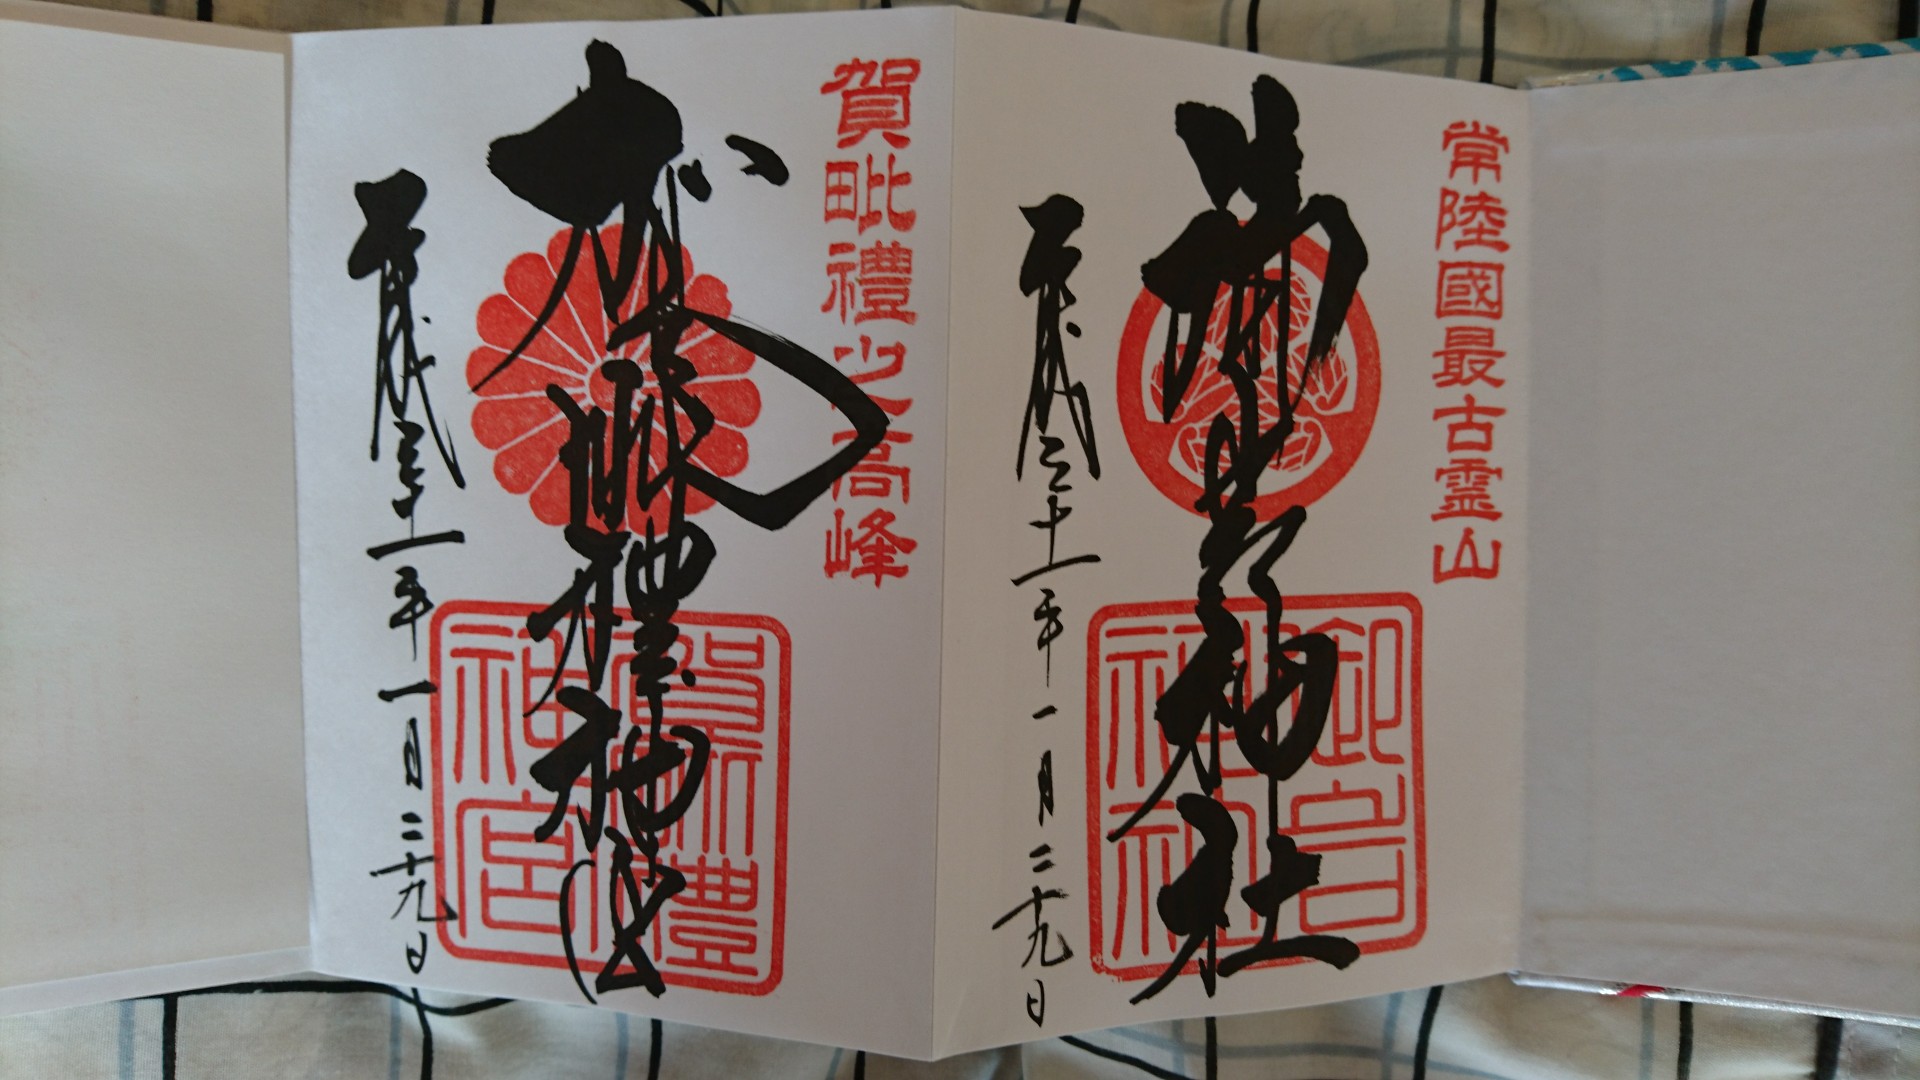 常陸國最古霊山
御岩神社
御岩
神社
平成三十一年一月二十九日
賀毗禮之高峰
賀毗禮神宮
賀毗禮
神宮
平成三十一年一月二十九日